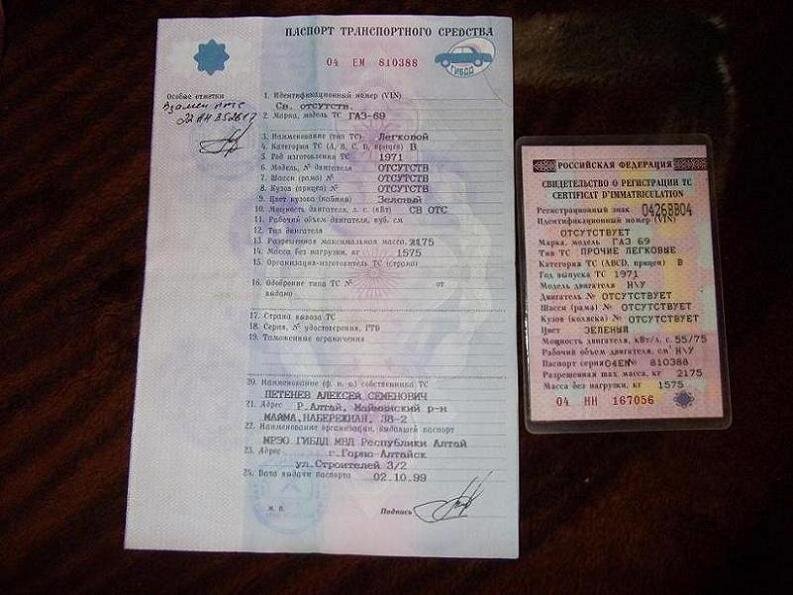 ПАСПОРТ ТРАНСПОРТНОГО СРЕДСТВА
04 ЕМ 810388
ГИБДД
Особые отметки
Взамен ПТС
1. Идентификационный номер (VIN)
Св. отсутств.
2. Марка, модель ТС ГАЗ-69
3. Наименование (тип ТС) Легковой
4. Категория ТС (А, В, С, D, прицеп) В
5. Год изготовления ТС 1971
6. Модель, № двигателя ОТСУТСТВ
7. Шасси (рама) № ОТСУТСТВ
8. Кузов (прицеп) № ОТСУТСТВ
9. Цвет кузова (кабины) Зеленый
10. Мощность двигателя, л. с. (кВт) СВ ОТС
11. Рабочий объем двигателя, куб. см
12. Тип двигателя
13. Разрешенная максимальная масса, 2175
14. Масса без нагрузки, кг 1575
15. Организация-изготовитель ТС (страна)
16. Одобрение типа ТС № от
выдано
17. Страна вывоза ТС
18. Серия, № удостоверения, ГТД
19. Таможенные ограничения
20. Наименование (ф. и. о.) собственника ТС
ПЕТЕНЕВ АЛЕКСЕЙ СЕМЕНОВИЧ
21. Адрес Р.Алтай, Майминский р-н
МАЙМА, НАБЕРЕЖНАЯ, 38-2
22. Наименование организации, выдавшей паспорт
МРЭО ГИБДД МВД Республики Алтай
23. Адрес г.Горно-Алтайск
ул.Строителей 3/2
25. Дата выдачи паспорта 02.10.99
М. П. Подпись
РОССИЙСКАЯ ФЕДЕРАЦИЯ
СВИДЕТЕЛЬСТВО О РЕГИСТРАЦИИ ТС
CERTIFICAT D'IMMATRICULATION
Регистрационный знак 0426ВВ04
Идентификационный номер (VIN)
ОТСУТСТВУЕТ
Марка, модель ГАЗ 69
Тип ТС ПРОЧИЕ ЛЕГКОВЫЕ
Категория ТС (ABCD, прицеп) В
Год выпуска ТС 1971
Модель двигателя Н\У
Двигатель № ОТСУТСТВУЕТ
Шасси (рама) № ОТСУТСТВУЕТ
Кузов (коляска) № ОТСУТСТВУЕТ
Цвет ЗЕЛЕНЫЙ
Мощность двигателя, кВт/л. с. 55/75
Рабочий объем двигателя, см³ Н\У
Паспорт серии 04ЕМ № 810388
Разрешенная max масса, кг 2175
Масса без нагрузки, кг 1575
04 НН 167056